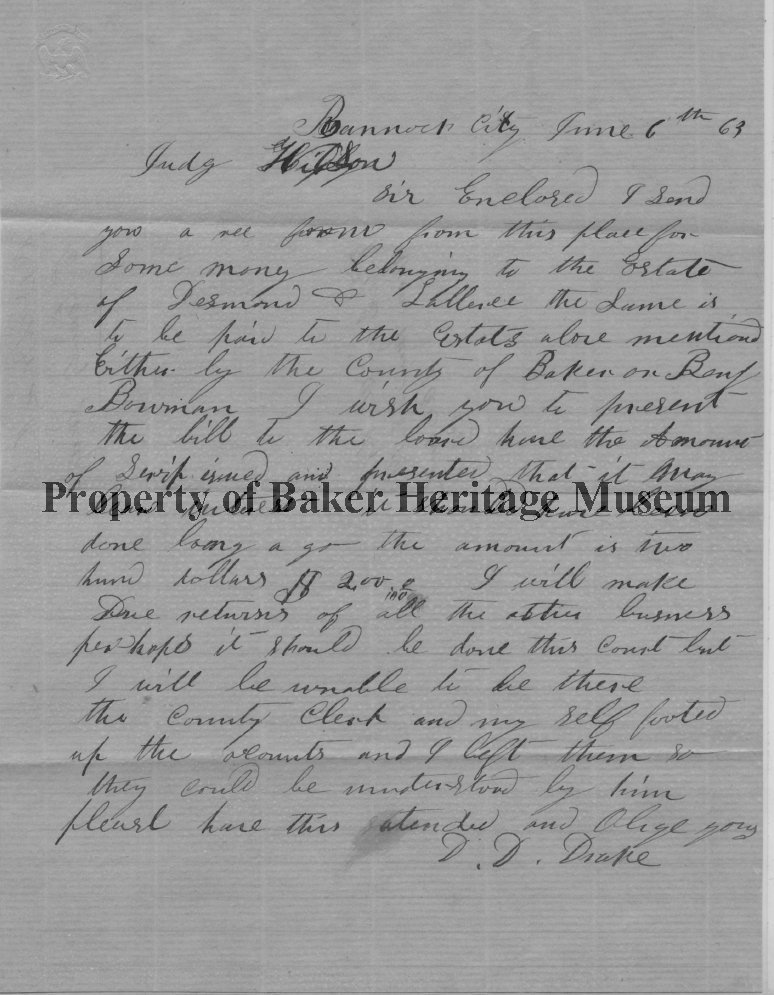 Bannock City June 6th 63
Judg Wilson
Sir Enclosed I send
you a rec from this place for
Some money belonging to the Estate
of Desmond & the Same is
to be paid to the Estats above mentiond
Either by the County of Baker or Benj
Bowman I wish you to present
the bill to the have the Amount
of Scrip issued and presented that it May
Property of Baker Heritage Museum
have been
done long a go the amount is two
hund dollars $ 200.00 I will make
Due returns of all the other business
perhaps it should be done this Court but
I will be unable to be there
the County Clerk and my self footed
up the acounts and I left them so
they could be understood by him
please have this atended and Oblige yours
D. D. Drake